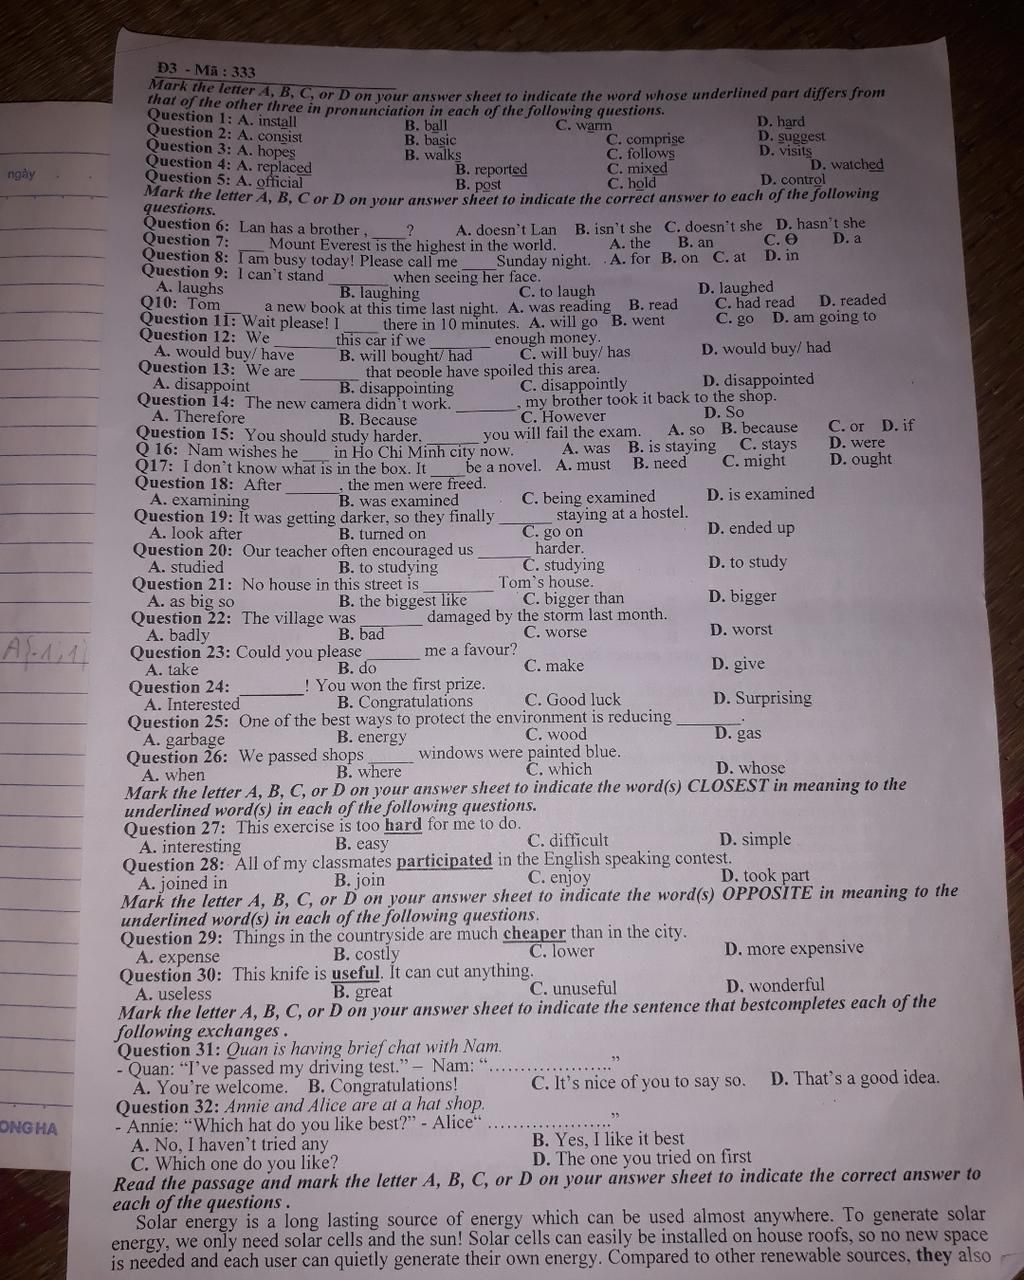 Đ3 - Mã : 333
Mark the letter A, B, C, or D on your answer sheet to indicate the word whose underlined part differs from
that of the other three in pronunciation in each of the following questions.
Question 1: A. install B. ball C. warm D. hard
Question 2: A. consist B. basic C. comprise D. suggest
Question 3: A. hopes B. walks C. follows D. visits
Question 4: A. replaced B. reported C. mixed D. watched
Question 5: A. official B. post C. hold D. control
Mark the letter A, B, C or D on your answer sheet to indicate the correct answer to each of the following
questions.
Question 6: Lan has a brother , ____? A. doesn't Lan B. isn't she C. doesn't she D. hasn't she
Question 7: ___ Mount Everest is the highest in the world. A. the B. an C. Ө D. a
Question 8: I am busy today! Please call me ____ Sunday night. A. for B. on C. at D. in
Question 9: I can't stand ________ when seeing her face.
A. laughs B. laughing C. to laugh D. laughed
Q10: Tom ____ a new book at this time last night. A. was reading B. read C. had read D. readed
Question 11: Wait please! I ____ there in 10 minutes. A. will go B. went C. go D. am going to
Question 12: We _______ this car if we _______ enough money.
A. would buy/ have B. will bought/ had C. will buy/ has D. would buy/ had
Question 13: We are _______ that people have spoiled this area.
A. disappoint B. disappointing C. disappointly D. disappointed
Question 14: The new camera didn't work. _______, my brother took it back to the shop.
A. Therefore B. Because C. However D. So
Question 15: You should study harder, ______ you will fail the exam. A. so B. because C. or D. if
Q 16: Nam wishes he ___ in Ho Chi Minh city now. A. was B. is staying C. stays D. were
Q17: I don't know what is in the box. It ____ be a novel. A. must B. need C. might D. ought
Question 18: After ______, the men were freed.
A. examining B. was examined C. being examined D. is examined
Question 19: It was getting darker, so they finally ______ staying at a hostel.
A. look after B. turned on C. go on D. ended up
Question 20: Our teacher often encouraged us ______ harder.
A. studied B. to studying C. studying D. to study
Question 21: No house in this street is ________ Tom's house.
A. as big so B. the biggest like C. bigger than D. bigger
Question 22: The village was _______ damaged by the storm last month.
A. badly B. bad C. worse D. worst
Question 23: Could you please ______ me a favour?
A. take B. do C. make D. give
Question 24: _______! You won the first prize.
A. Interested B. Congratulations C. Good luck D. Surprising
Question 25: One of the best ways to protect the environment is reducing _______.
A. garbage B. energy C. wood D. gas
Question 26: We passed shops _____ windows were painted blue.
A. when B. where C. which D. whose
Mark the letter A, B, C, or D on your answer sheet to indicate the word(s) CLOSEST in meaning to the
underlined word(s) in each of the following questions.
Question 27: This exercise is too hard for me to do.
A. interesting B. easy C. difficult D. simple
Question 28: All of my classmates participated in the English speaking contest.
A. joined in B. join C. enjoy D. took part
Mark the letter A, B, C, or D on your answer sheet to indicate the word(s) OPPOSITE in meaning to the
underlined word(s) in each of the following questions.
Question 29: Things in the countryside are much cheaper than in the city.
A. expense B. costly C. lower D. more expensive
Question 30: This knife is useful. It can cut anything.
A. useless B. great C. unuseful D. wonderful
Mark the letter A, B, C, or D on your answer sheet to indicate the sentence that bestcompletes each of the
following exchanges .
Question 31: Quan is having brief chat with Nam.
- Quan: “I've passed my driving test.” – Nam: “.....................”
A. You're welcome. B. Congratulations! C. It's nice of you to say so. D. That's a good idea.
Question 32: Annie and Alice are at a hat shop.
- Annie: “Which hat do you like best?” - Alice“ .....................”
A. No, I haven't tried any B. Yes, I like it best
C. Which one do you like? D. The one you tried on first
Read the passage and mark the letter A, B, C, or D on your answer sheet to indicate the correct answer to
each of the questions .
Solar energy is a long lasting source of energy which can be used almost anywhere. To generate solar
energy, we only need solar cells and the sun! Solar cells can easily be installed on house roofs, so no new space
is needed and each user can quietly generate their own energy. Compared to other renewable sources, they also
ngày . .
A{-1;1}
ONG HA